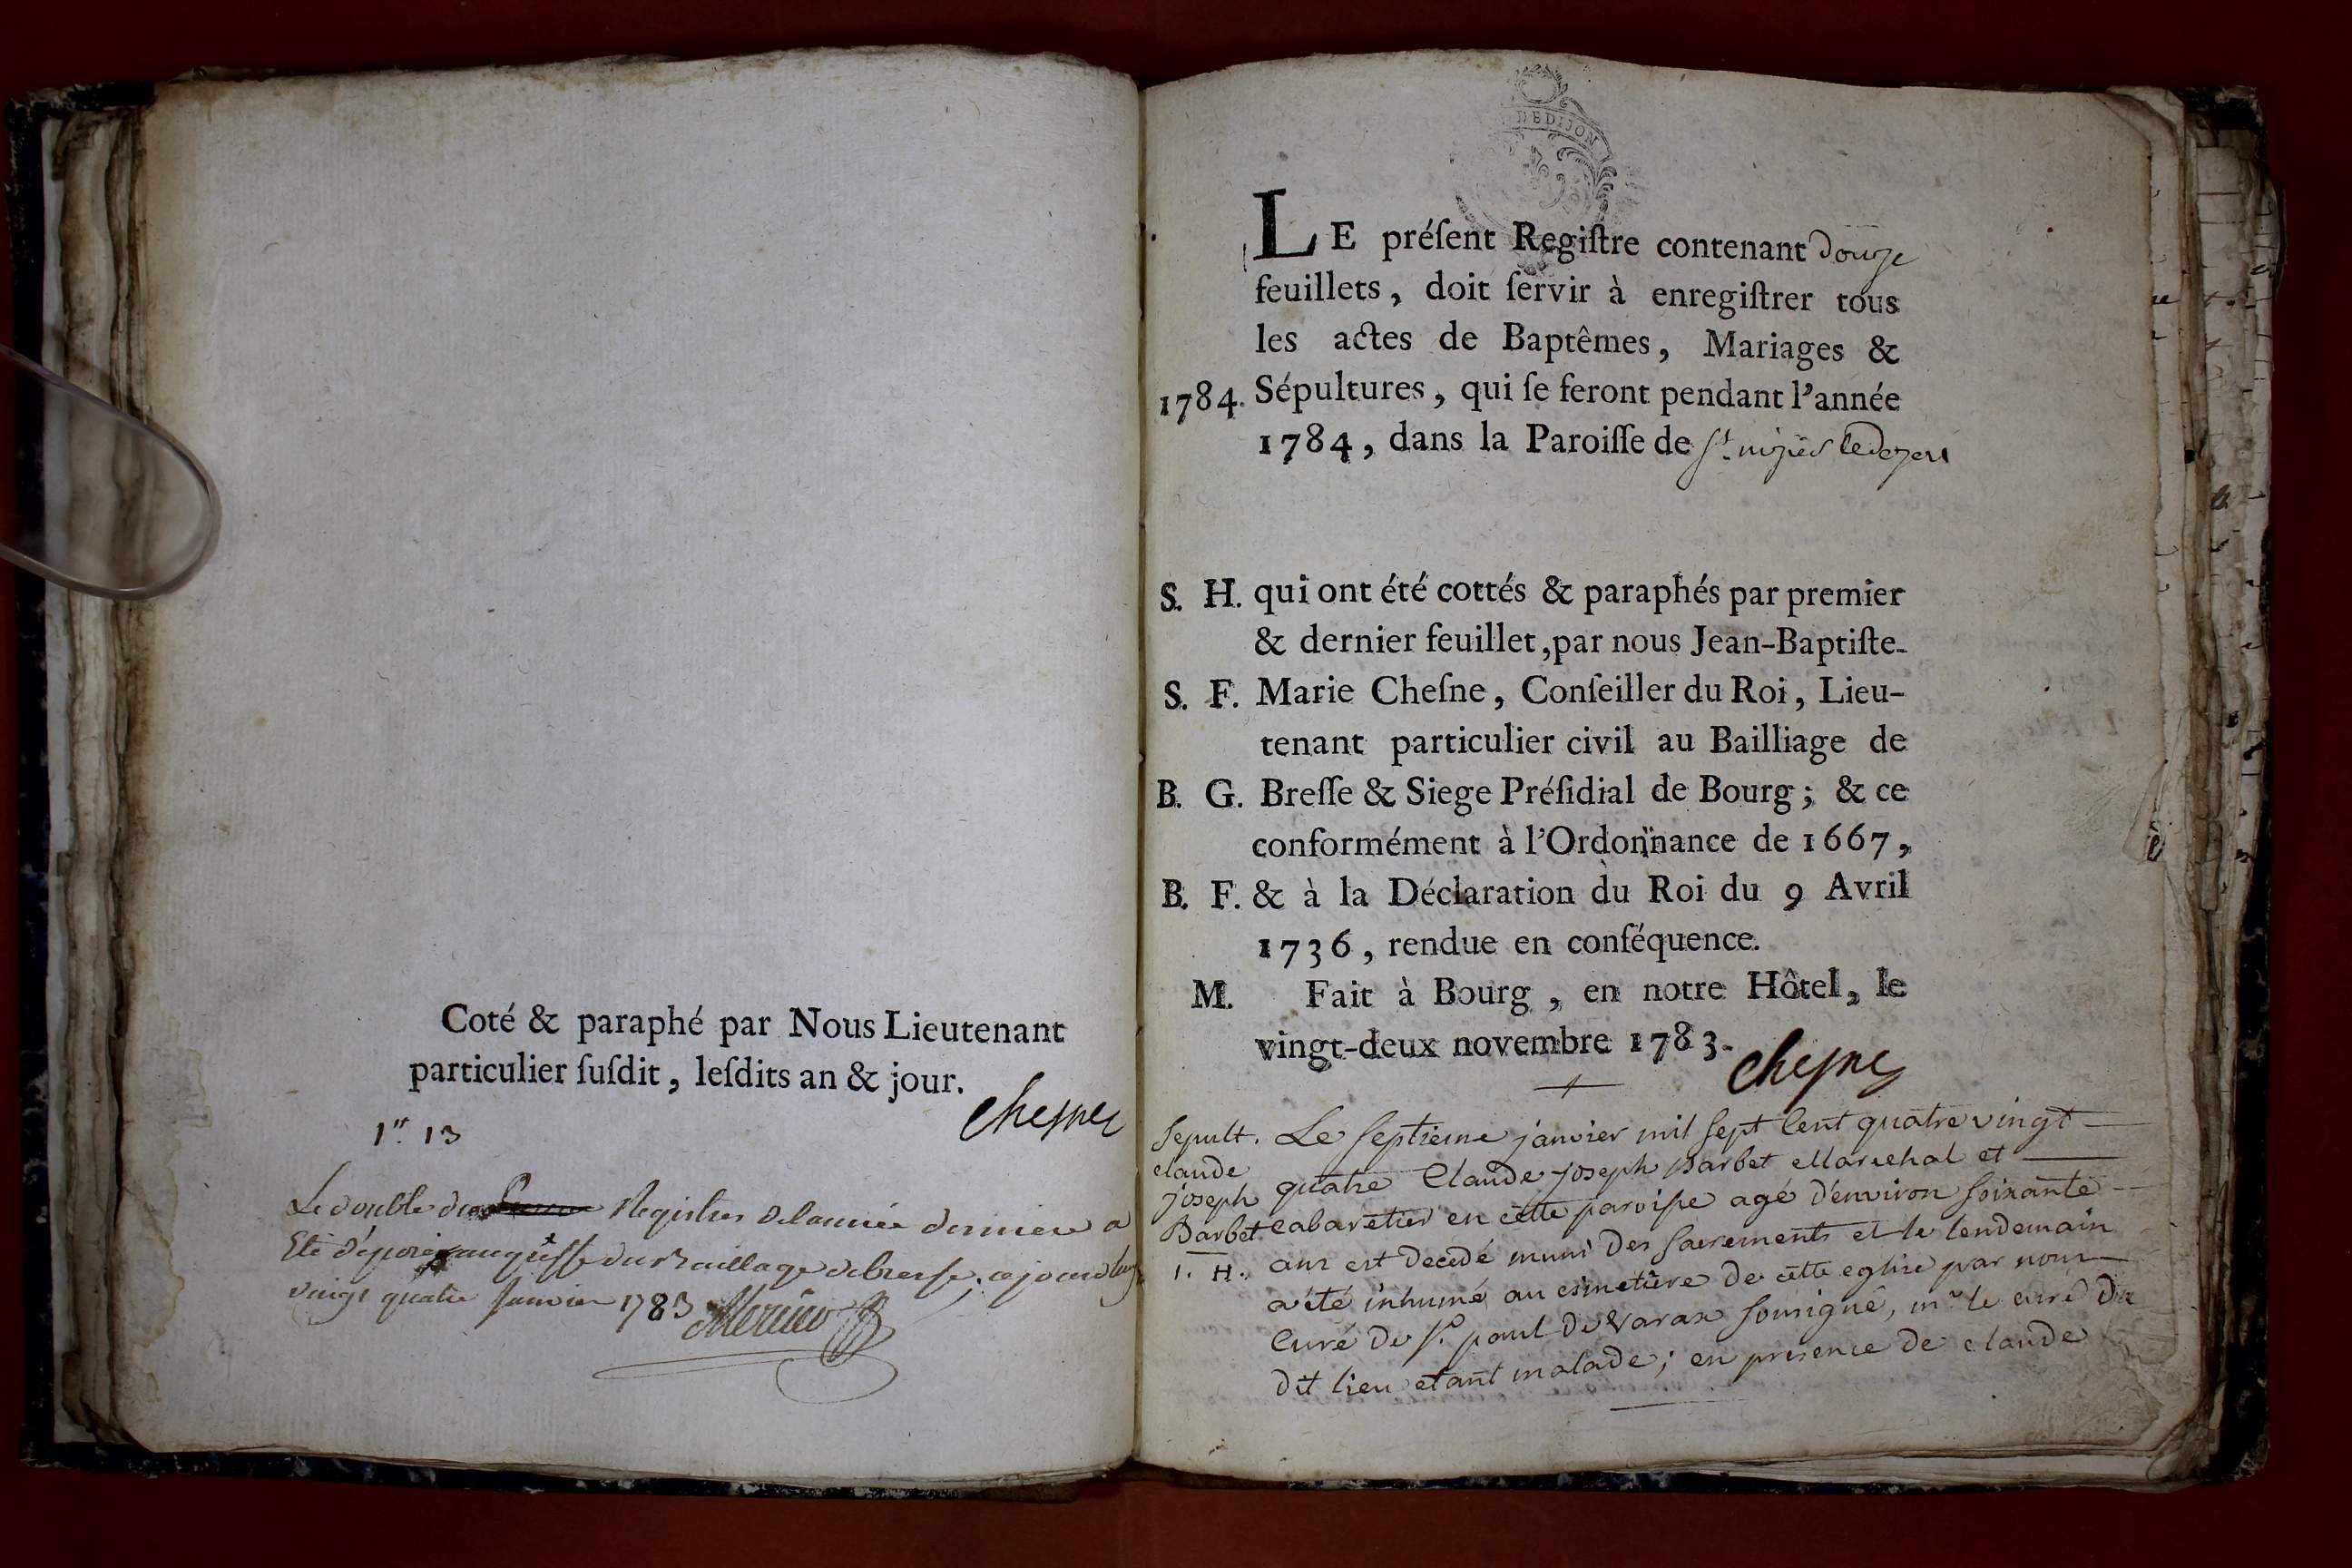 Coté & paraphé par Nous Lieutenant
particulier ſuſdit, leſdits an & jour.
chesne
1er. 13
Le double des Registres delannée derniere a
Eté déposé augreffe du Bailliage debresse, cejourdhuy
vingt quatre Janvier 1783
DEDIJON
LE préſent Regiſtre contenant douze
feuillets, doit ſervir à enregiſtrer tous
les actes de Baptêmes, Mariages &
1784. Sépultures, qui ſe feront pendant l'année
1784, dans la Paroiſſe de St. nizier ledezert
S. H. qui ont été cottés & paraphés par premier
& dernier feuillet, par nous Jean-Baptiſte-
S. F. Marie Cheſne, Conſeiller du Roi, Lieu-
tenant particulier civil au Bailliage de
B. G. Breſſe & Siege Préſidial de Bourg; & ce
conformément à l'Ordonnance de 1667,
B. F. & à la Déclaration du Roi du 9 Avril
1736, rendue en conſéquence.
M. Fait à Bourg, en notre Hôtel, le
vingt-deux novembre 1783.
chesne
Sepult.
claude
joseph
Barbet
1. H.
Le septieme janvier mil sept cent quatre vingt
quatre Claude joseph Barbet Marechal et
cabaretier en cette paroisse agé d'environ soixante
ans est decedé muni des sacrements et le lendemain
a été inhumé au cimetiere de cette eglise par nous
Curé de St. paul de Varax soussigné, mr le curé du
dit lieu etant malade; en presence de claude